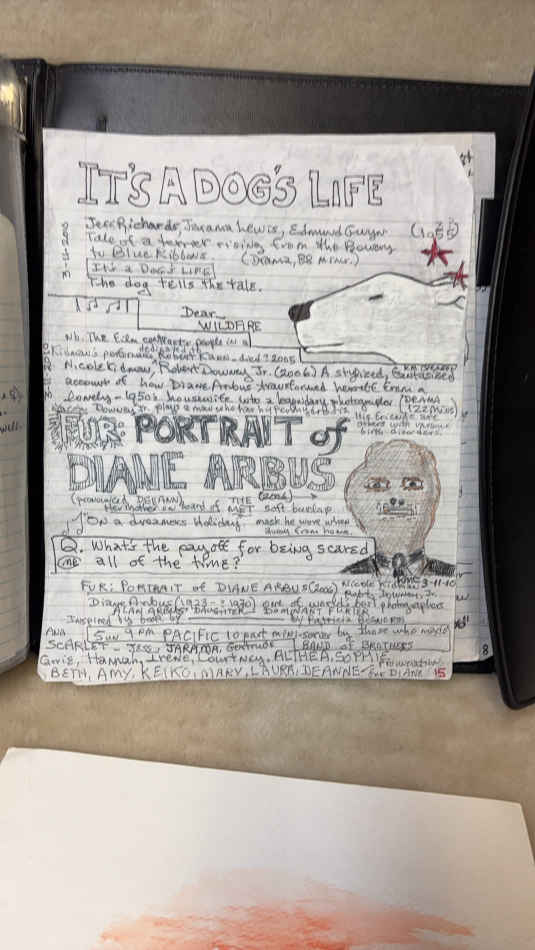 IT'S A DOG'S LIFE
3-11-2010
Jeff Richards, Jarama Lewis, Edmund Gwyn
Tale of a terrier rising from the Bowery
to Blue Ribbons. (Drama, 88 mins.)
IT'S A DOG'S LIFE
The dog tells the tale.
Dear
WILDFIRE
Nb. The film contracts people in a
dedicated to
Kidman's performance Robert Kann - died? 2005
Nicole Kidman, Robert Downey Jr. (2006) A stylized, fantasized
account of how Diane Arbus transformed herself from a
lonely - 1950s housewife into a legendary photographer (DRAMA
122 mins)
Downey Jr. plays a man who has hypertrichosis. His friends are
others with various
birth disorders.
FUR: PORTRAIT of
DIANE ARBUS
(pronounced DEEANN) (2006)
Her mother on board of THE MET
soft burlap
mask he wore when
away from home.
"On a dreamers Holiday
Q. What's the payoff for being scared
ONE all of the time?
FUR: PORTRAIT of DIANE ARBUS (2006) Nicole Kidman 3-11-10
Robt. Downey, Jr.
Diane Arbus (1923 - ? 1970) one of world's best photographers
ALAN ARBUS' DAUGHTER DOMINANT FURIER
Inspired by book by by Patricia Bosworth
SUN 9 PM PACIFIC 10 part mini-series by those who made
BAND OF BROTHERS
ANA
SCARLET - Jess, JARAMA, Gertrude
Gavie, Hannah, Irene, Courtney, ALTHEA, SOPHIE
BETH, AMY, KEIKO, MARY, LAURA, DEANNE - Pronunciation
for DIANE 15
8